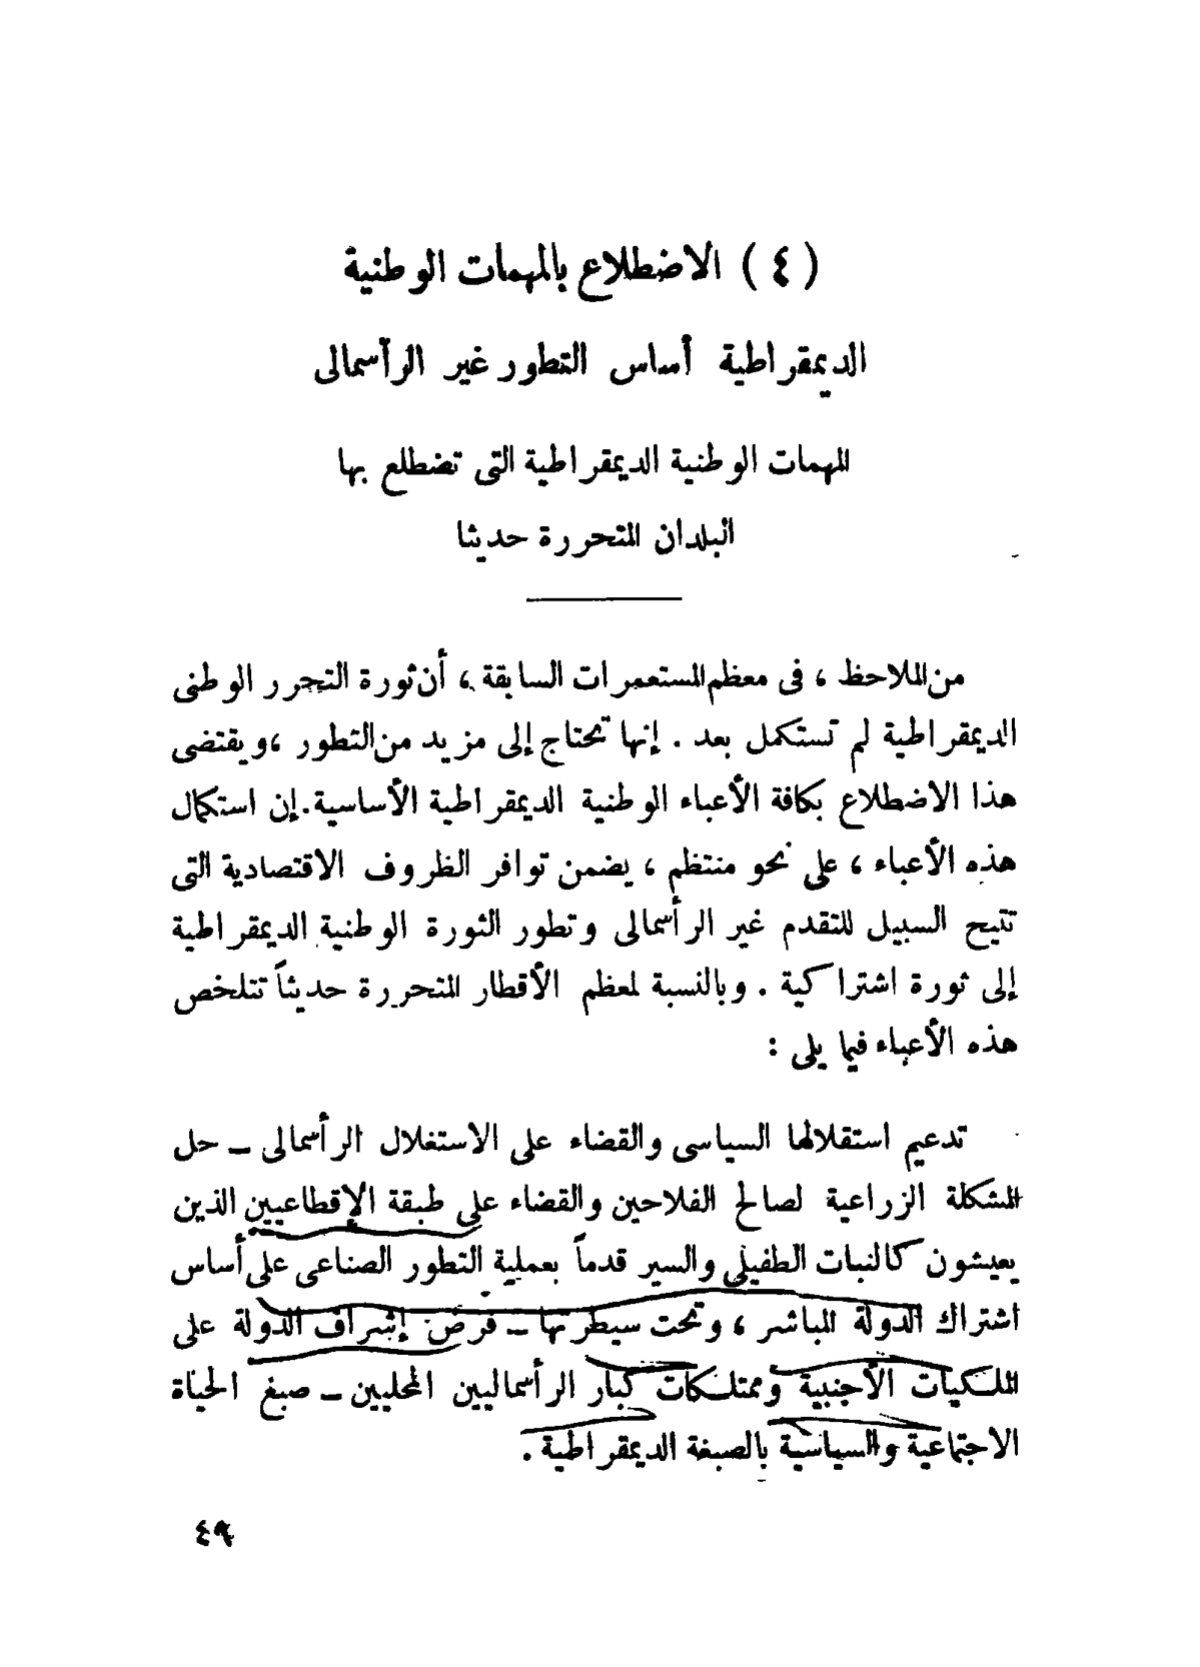 ( ٤ ) الاضطلاع بالمهمات الوطنية
الديمقراطية أساس التطور غير الرأسمالى
المهمات الوطنية الديمقراطية التى تضطلع بها
البلدان المتحررة حديثا
من الملاحظ ، فى معظم المستعمرات السابقة ، أن ثورة التحرر الوطنى
الديمقراطية لم تستكمل بعد . إنها تحتاج إلى مزيد من التطور ، ويقتضى
هذا الاضطلاع بكافة الأعباء الوطنية الديمقراطية الأساسية . إن استكمال
هذه الأعباء ، على نحو منتظم ، يضمن توافر الظروف الاقتصادية التى
تتيح السبيل للتقدم غير الرأسمالى وتطور الثورة الوطنية الديمقراطية
إلى ثورة اشتراكية . وبالنسبة لمعظم الأقطار المتحررة حديثاً تتلخص
هذه الأعباء فيما يلى :
تدعيم استقلالها السياسى والقضاء على الاستغلال الرأسمالى – حل
المشكلة الزراعية لصالح الفلاحين والقضاء على طبقة الإقطاعيين الذين
يعيشون كالنبات الطفيلى والسير قدماً بعملية التطور الصناعى على أساس
اشتراك الدولة المباشر ، وتحت سيطرتها – فرض إشراف الدولة على
الملكيات الأجنبية وممتلكات كبار الرأسماليين المحليين – صبغ الحياة
الاجتماعية والسياسية بالصبغة الديمقراطية .
٤٩